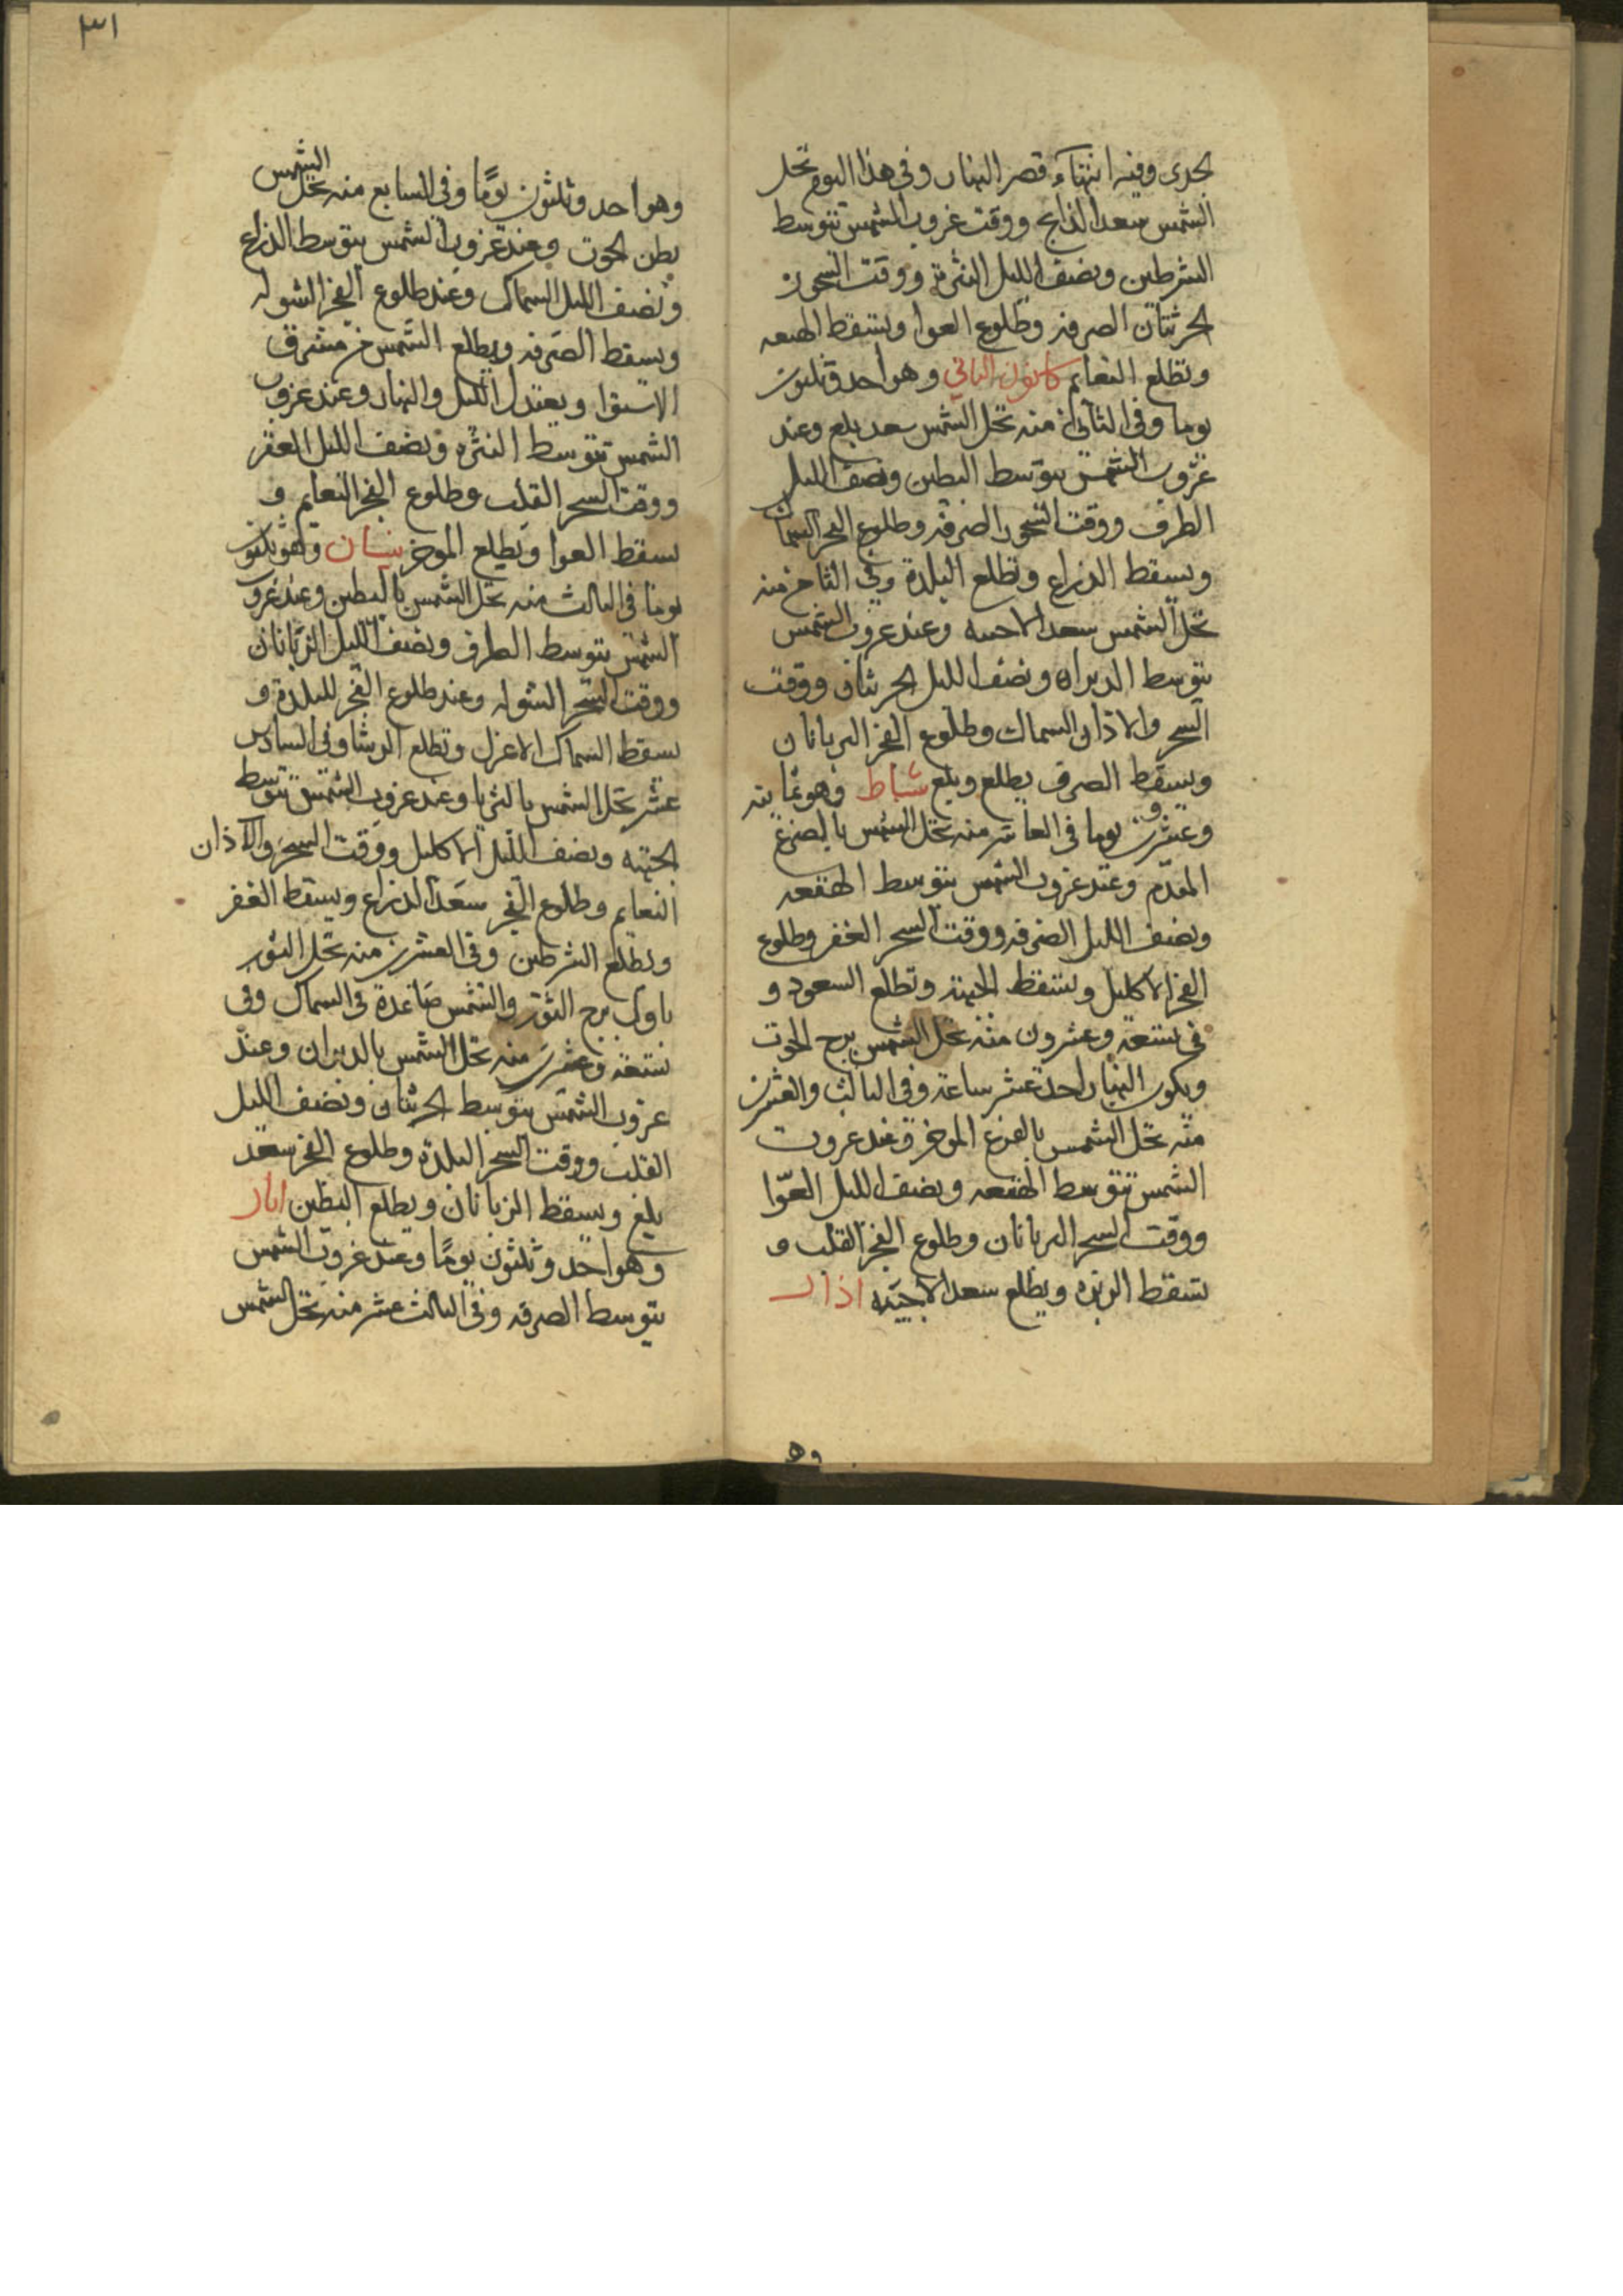 الجدى وفيه انتهاء قصر النهار وفي هذا اليوم تحل
الشمس سعد الذابح ووقت غروب الشمس تتوسط
الشرطين ونصف الليل النثرة ووقت السحور
الحرثتان الصرفه وطلوع العوا وتسقط الهنعه
وتطلع النعايم كانون الثاني وهو احد وثلثون
يوما وفي الثاني منه تحل الشمس سعد بلع وعند
غروب الشمس يتوسط البطين ونصف الليل
الطرف ووقت السحور الصرفه وطلوع الفجر السماك
ويسقط الذراع وتطلع البلدة وفي الثامن منه
تحل الشمس سعد الاحبيه وعند غروب الشمس
يتوسط الدبران ونصف الليل الحرثتان ووقت
السحر والاذان السماك وطلوع الفجر الزبانان
ويسقط الطرف يطلع وبلع شباط وهو ثمانيه
وعشرون يوما في العاشر منه تحل الشمس بالفرغ
المقدم وعند غروب الشمس يتوسط الهقعه
ونصف الليل الصرفه ووقت السحر الغفر وطلوع
الفجر الاكليل وتسقط الجبهة وتطلع السعود و
في تسعة وعشرون منه تحل الشمس برج الحوت
ويكون النهار احدعشر ساعة وفي الثالث والعشرين
منه تحل الشمس بالفرغ الموخر وعند غروب
الشمس تتوسط الهقعه ونصف الليل العوّا
ووقت السحر الزبانان وطلوع الفجر القلب و
تسقط الزبره ويطلع سعد الاخبيه اذار
وه
٣١
وهو احد وثلثون يومًا وفي السابع منه تحل الشمس
بطن الحوت وعند غروب الشمس يتوسط الذراع
ونصف الليل السماك وعند طلوع الفجر الشوله
ويسقط الصرفه ويطلع الشمس من مشرق
الاستوا ويعتدل الليل والنهار وعند غروب
الشمس تتوسط النثره ونصف الليل الغفر
ووقت السحر القلب وطلوع الفجر النعايم و
يسقط العوا ويطلع الموخر نيسان وهو ثلثون
يوما في الثالث منه تحل الشمس بالبطين وعند غروب
الشمس يتوسط الطرف ونصف الليل الزبانان
ووقت السحر الشوله وعند طلوع الفجر البلدة و
يسقط السماك الاعزل وتطلع الرشا وفي السادس
عشر تحل الشمس بالثريا وعند غروب الشمس تتوسط
الجبهه ونصف الليل الاكليل ووقت السحر والاذان
النعايم وطلوع الفجر سعد الذراع ويسقط الغفر
ويطلع الشرطين وفي العشرين منه تحل الثور
باول برج الثور والشمس صاعدة في السماك وفي
تسعة وعشرين منه تحل الشمس بالدبران وعند
غروب الشمس يتوسط الحرثتان ونصف الليل
القلب ووقت السحر البلدة وطلوع الفجر سعد
بلع ويسقط الزبانان ويطلع البطين ايار
وهو احد وثلثون يومًا وعند غروب الشمس
يتوسط الصرفه وفي الثالث عشر منه تحل الشمس